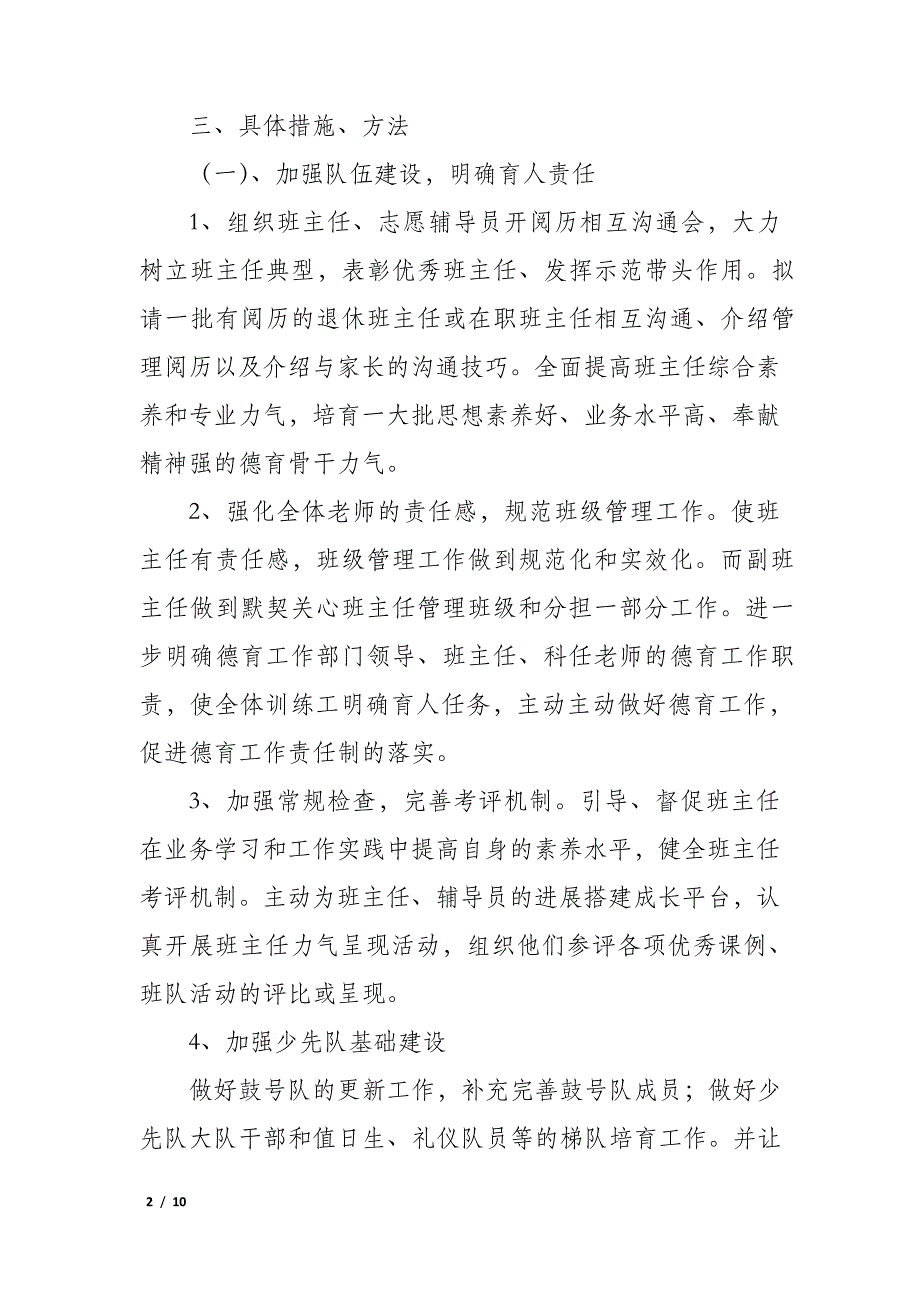 三、具体措施、方法
（一）、加强队伍建设，明确育人责任
1、组织班主任、志愿辅导员开阅历相互沟通会，大力
树立班主任典型，表彰优秀班主任、发挥示范带头作用。拟
请一批有阅历的退休班主任或在职班主任相互沟通、介绍管
理阅历以及介绍与家长的沟通技巧。全面提高班主任综合素
养和专业力气，培育一大批思想素养好、业务水平高、奉献
精神强的德育骨干力气。
2、强化全体老师的责任感，规范班级管理工作。使班
主任有责任感，班级管理工作做到规范化和实效化。而副班
主任做到默契关心班主任管理班级和分担一部分工作。进一
步明确德育工作部门领导、班主任、科任老师的德育工作职
责，使全体训练工明确育人任务，主动主动做好德育工作，
促进德育工作责任制的落实。
3、加强常规检查，完善考评机制。引导、督促班主任
在业务学习和工作实践中提高自身的素养水平，健全班主任
考评机制。主动为班主任、辅导员的进展搭建成长平台，认
真开展班主任力气呈现活动，组织他们参评各项优秀课例、
班队活动的评比或呈现。
4、加强少先队基础建设
做好鼓号队的更新工作，补充完善鼓号队成员；做好少
先队大队干部和值日生、礼仪队员等的梯队培育工作。并让
2 / 10